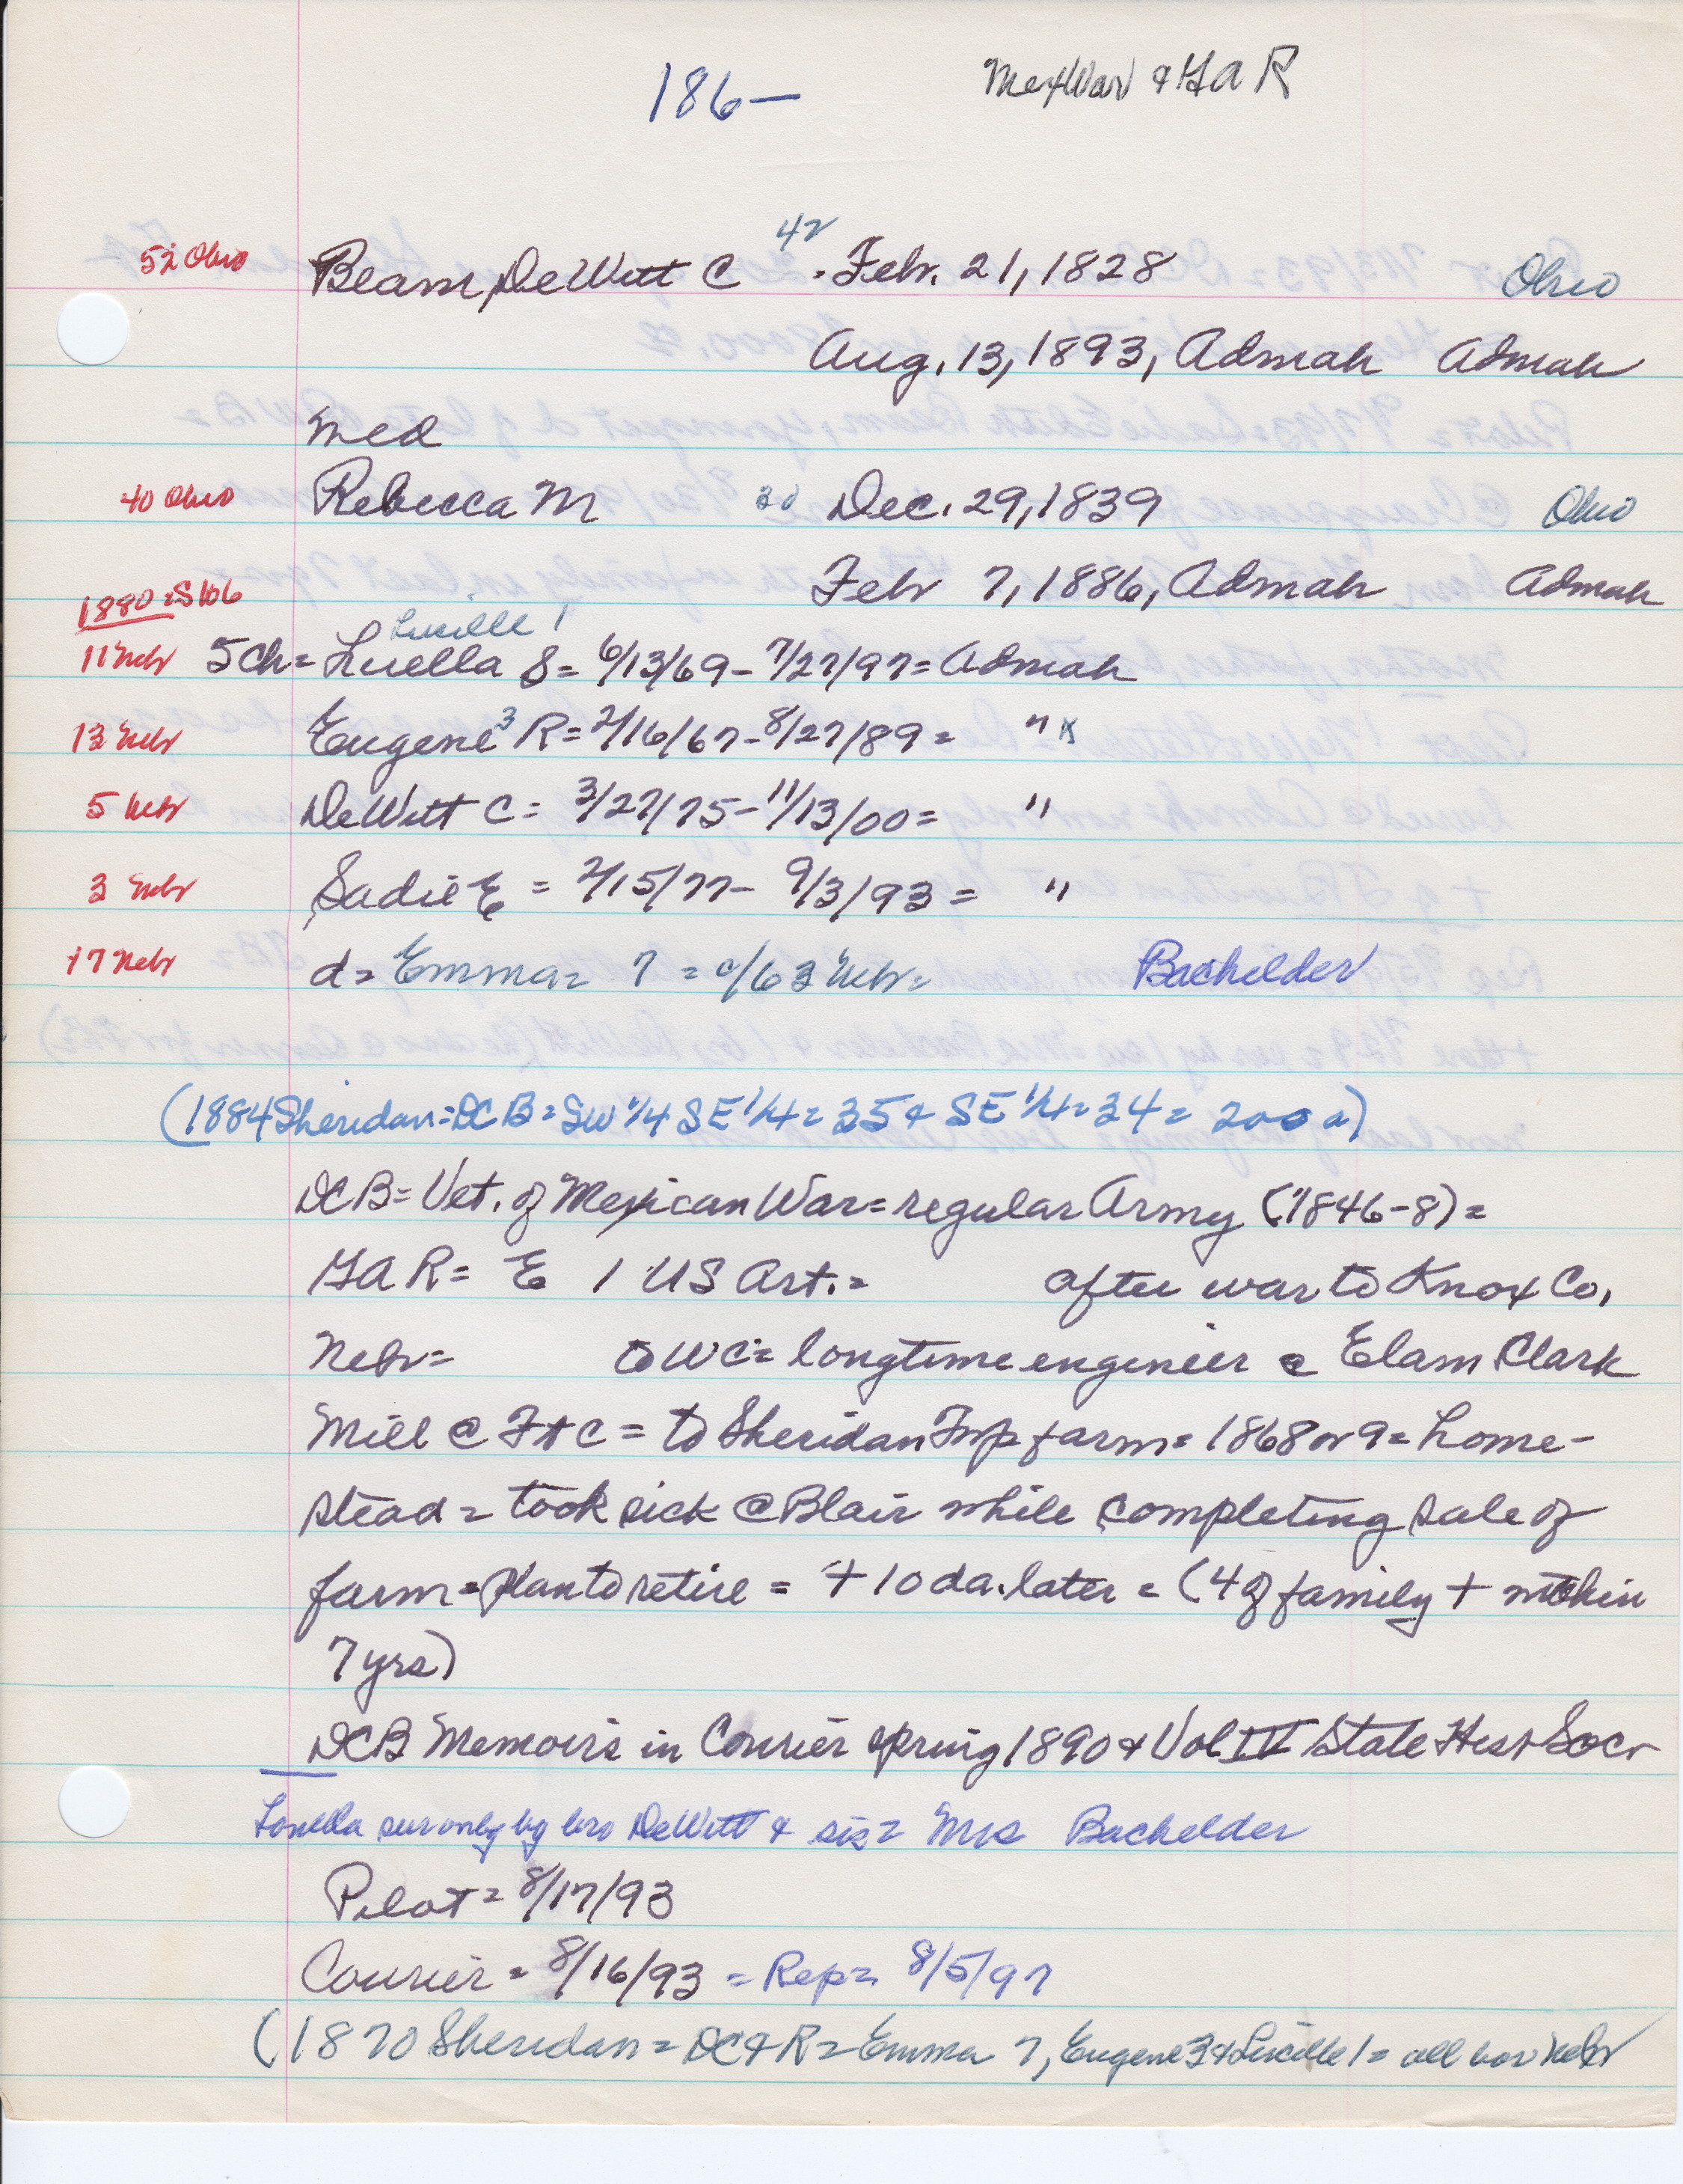 186— MexWar & GAR
42
52 Ohio Beam, DeWitt C . Febr. 21, 1828 Ohio
Aug. 13, 1893, Admah Admah
med
40 Ohio Rebecca M 30 Dec. 29, 1839 Ohio
Febr 7, 1886, Admah Admah
1880 = S 106
Lucille 1
11 Nebr 5 Ch = Luella S = 6/13/69 - 7/27/97 = Admah
13 Nebr Eugene 3 R = 2/16/67 - 8/27/89 = " x
5 Nebr DeWitt C = 3/27/75 - 11/13/00 = "
3 Nebr Sadie E = 2/15/77 - 9/3/93 = "
17 Nebr d = Emma = 7 = c/63 Nebr = Bachelder
(1884 Sheridan = DCB = SW 1/4 SE 1/4 = 35 & SE 1/4 = 34 = 200 a)
DCB = Vet. of Mexican War = regular Army (1846-8) =
GAR = E 1 US Art. = after war to Knox Co,
Nebr = to WC = longtime engineer @ Elam Clark
Mill @ Ft C = to Sheridan Twp farm = 1868 or 9 = home-
stead = took sick @ Blair while completing sale of
farm = plan to retire = + 10 da. later = (4 of family + within
7 yrs)
DCB Memoirs in Courier spring 1890 & Vol IV State Hist Socr
Louella sur only by bro DeWitt & sis = Mrs Bachelder
Pilot = 8/17/93
Courier = 8/16/93 = Rep = 8/5/97
(1870 Sheridan = DC & R = Emma 7, Eugene 3 & Lucille 1 = all bor Nebr